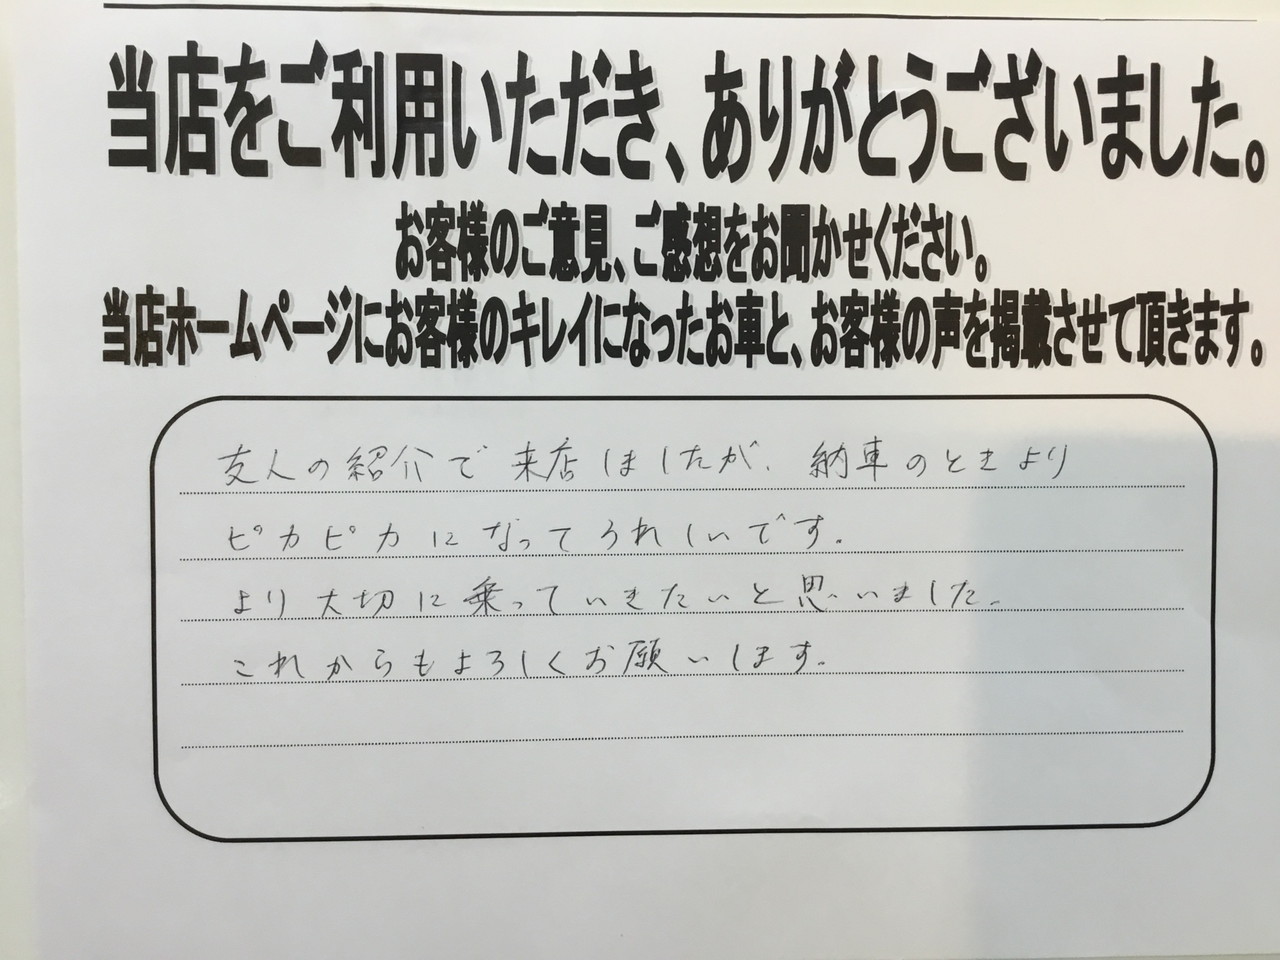 当店をご利用いただき、ありがとうございました。
お客様のご意見、ご感想をお聞かせください。
当店ホームページにお客様のキレイになったお車と、お客様の声を掲載させて頂きます。
友人の紹介で来店しましたが、納車のときより
ピカピカになってうれしいです。
より大切に乗っていきたいと思いました。
これからもよろしくお願いします。